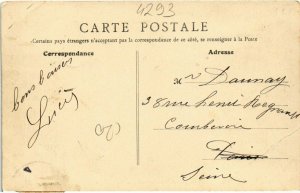 4293
CARTE POSTALE
Certains pays étrangers n'acceptant pas la correspondance de ce côté, se renseigner à la Poste
Correspondance
Adresse
bons baisers
Mr Daunay
38 rue henri Regnault
Courbevoie
Seine